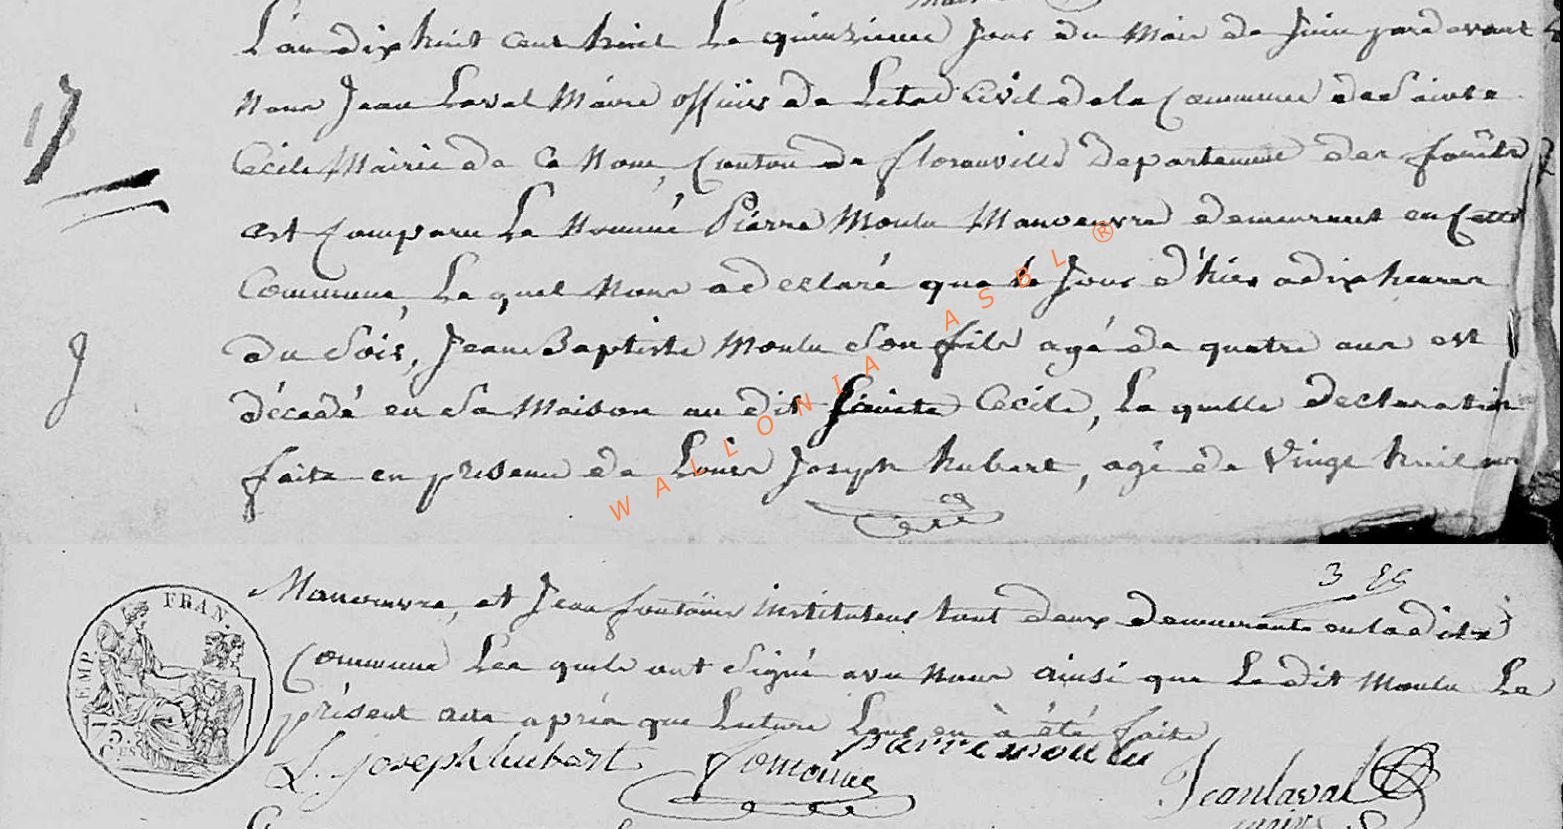 L'an dix huit cent huit Le quinzieme Jour du Mois de Juin pardevant
17
nous Jean Laval Maire officier de L'etat Civil de la Commune de Sainte
Cécile Mairie de Ce Nom, Canton de florenville Departement des forêts
est Comparu Le Nommé Pierre Moulu Manoeuvre demeurant en Cette
Commune, Le quel Nous a declaré que le Jour d'hier a dix heures
du Soir, Jean Baptiste Moulu Son fils agé de quatre ans est
J
décédé en Sa Maison au dit Sainte Cécile, La quelle declaration
faite en presence de Louis Joseph hubert, agé de Vingt huit ans
WALLONIA ASBL ®
Manoeuvre, et Jean fontaine instituteur tout deux demeurants en ladite
Commune Les quels ont Signé avec nous ainsi que Le dit Moulu Le
présent acte après que Lecture Leur en à été faite
TIMP. FRAN.
75
C.ES
L. joseph hubert fontaine pierre moulu Jean laval
maire